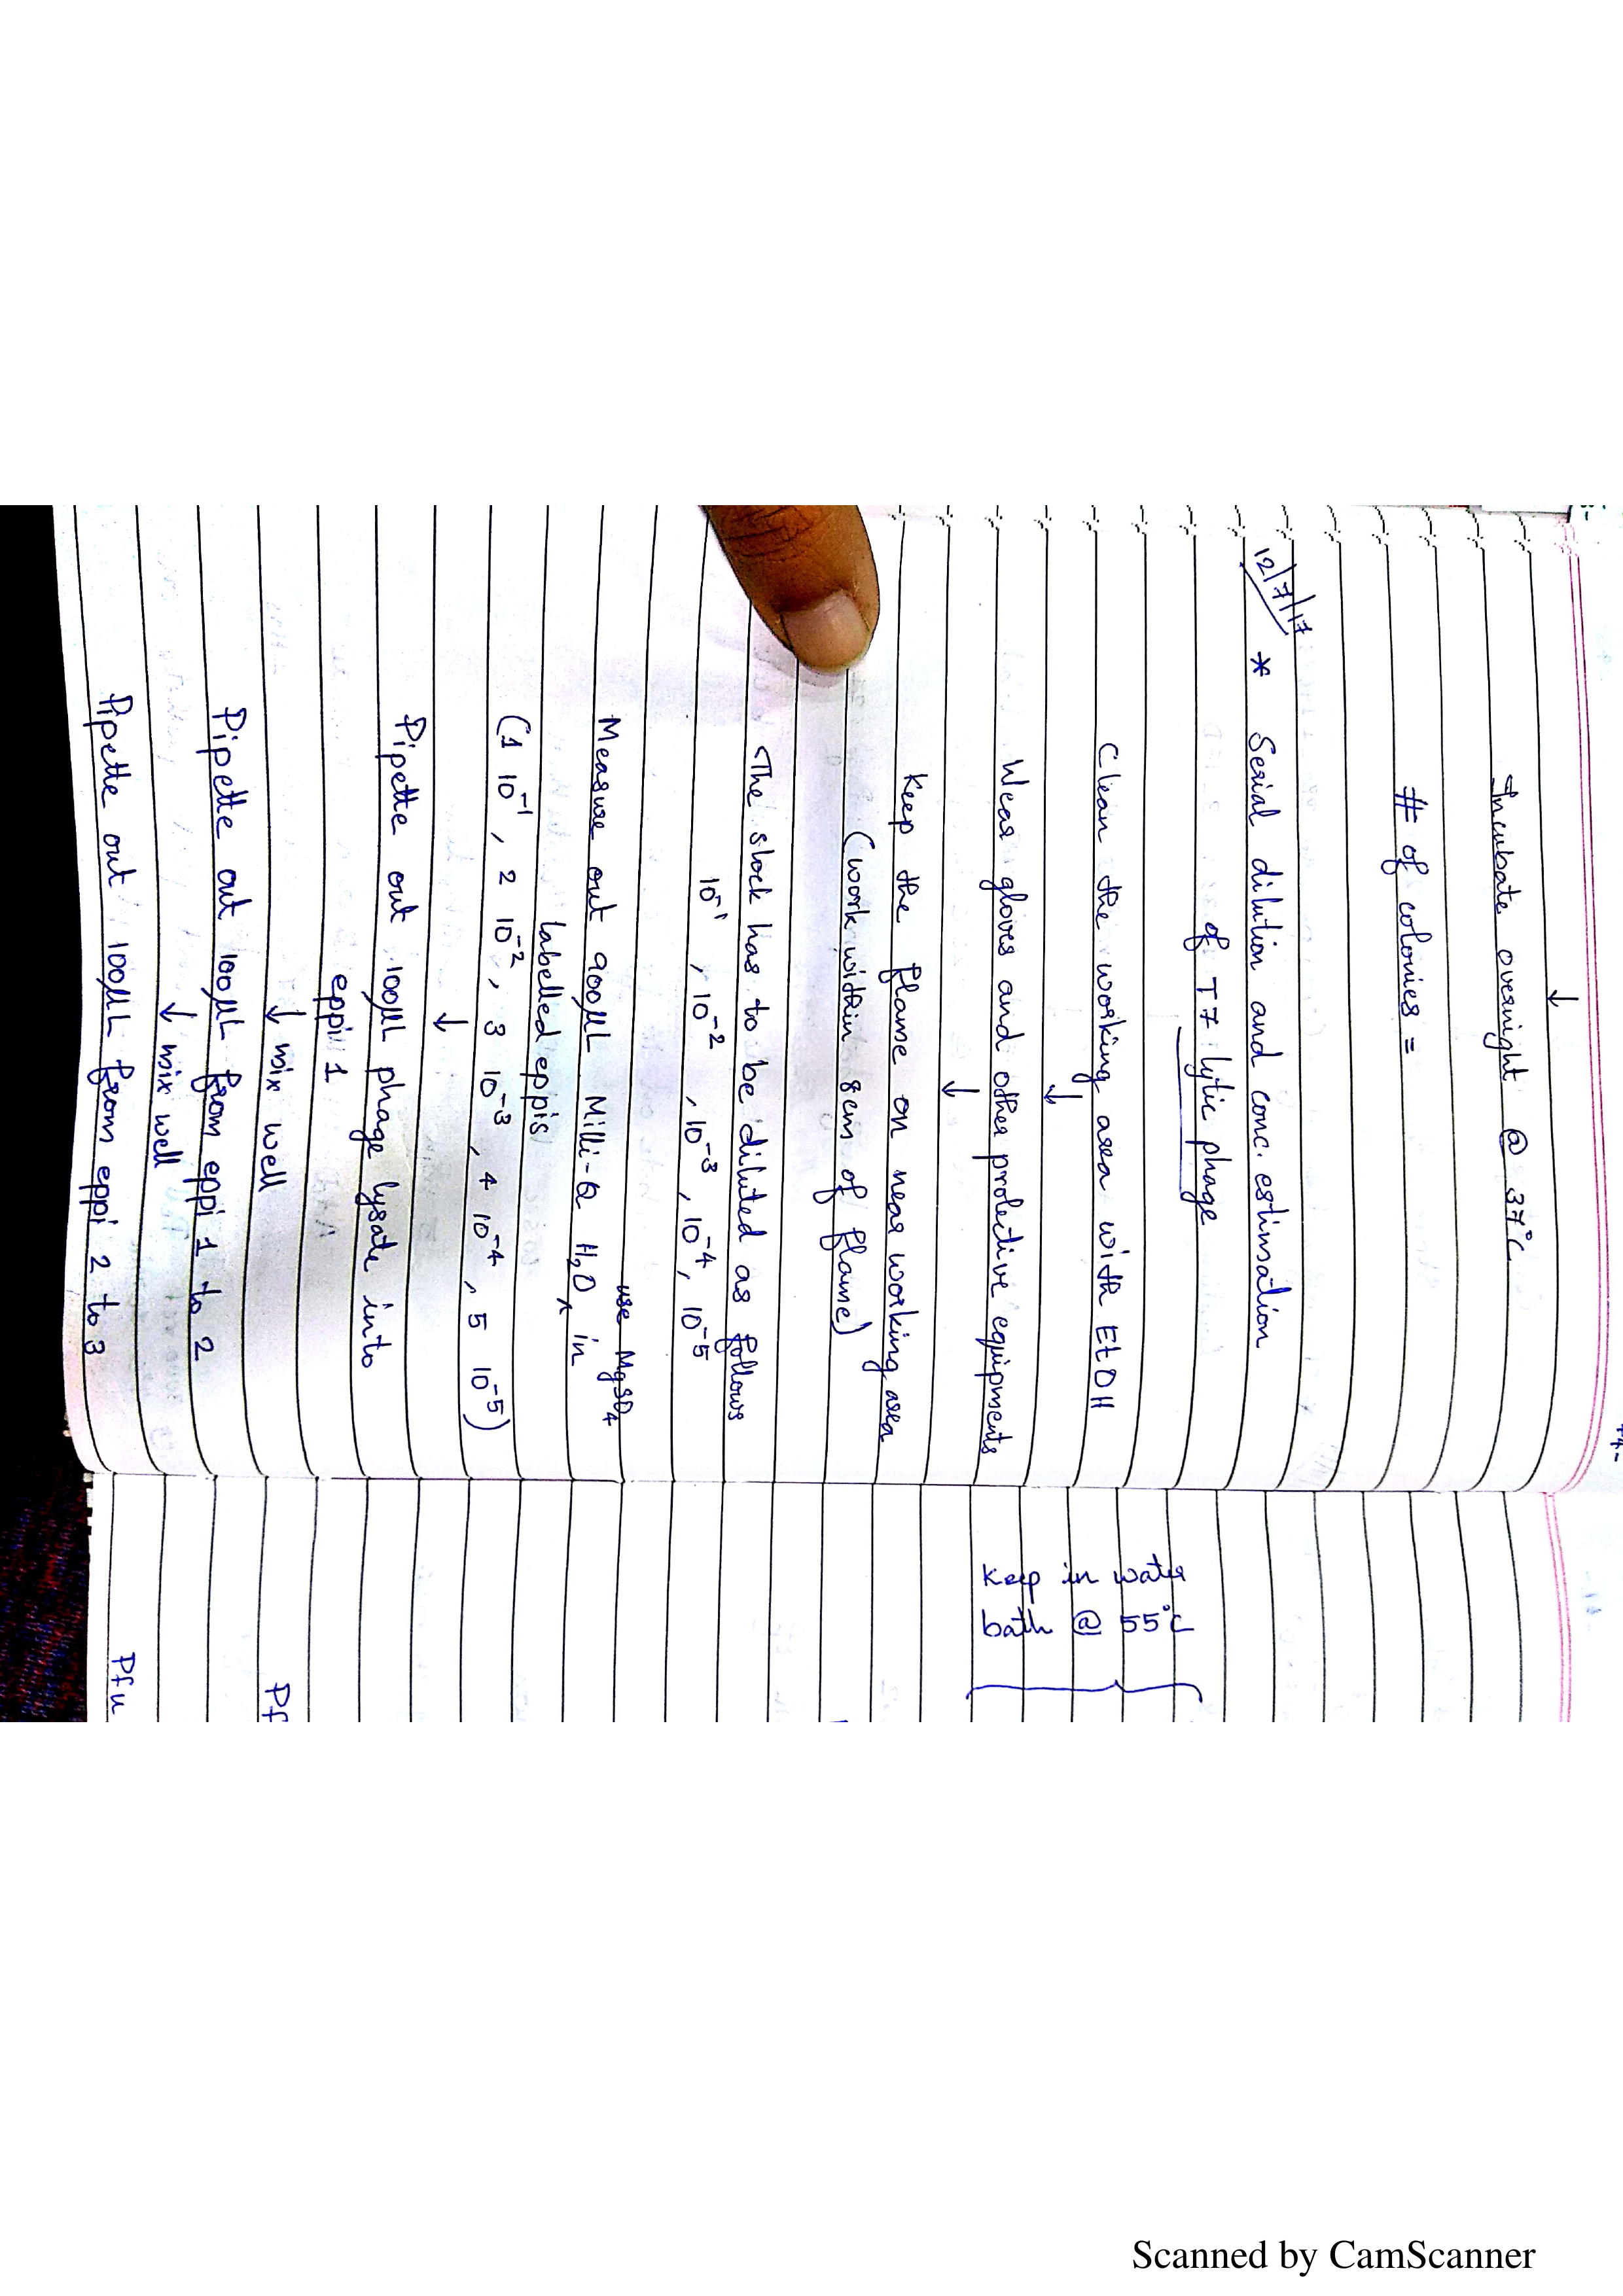 ↓
Incubate overnight @ 37°C
# of colonies =
12/7/17 * Serial dilution and conc. estimation
of T7 lytic phage
Clean the working area with EtOH
↓
Wear gloves and other protective equipments
↓
Keep the flame on near working area
(work within 8cm of flame)
The stock has to be diluted as follows
10⁻¹, 10⁻², 10⁻³, 10⁻⁴, 10⁻⁵
use MgSO₄
Measure out 900μL Milli-Q H₂O ^ in
labelled eppis
(1 10⁻¹, 2 10⁻², 3 10⁻³, 4 10⁻⁴, 5 10⁻⁵)
↓
Pipette out 100μL phage lysate into
eppi 1
↓ mix well
Pipette out 100μL from eppi 1 to 2
↓ mix well
Pipette out 100μL from eppi 2 to 3
Keep in water
bath @ 55°C
Pf
Pfu
Scanned by CamScanner